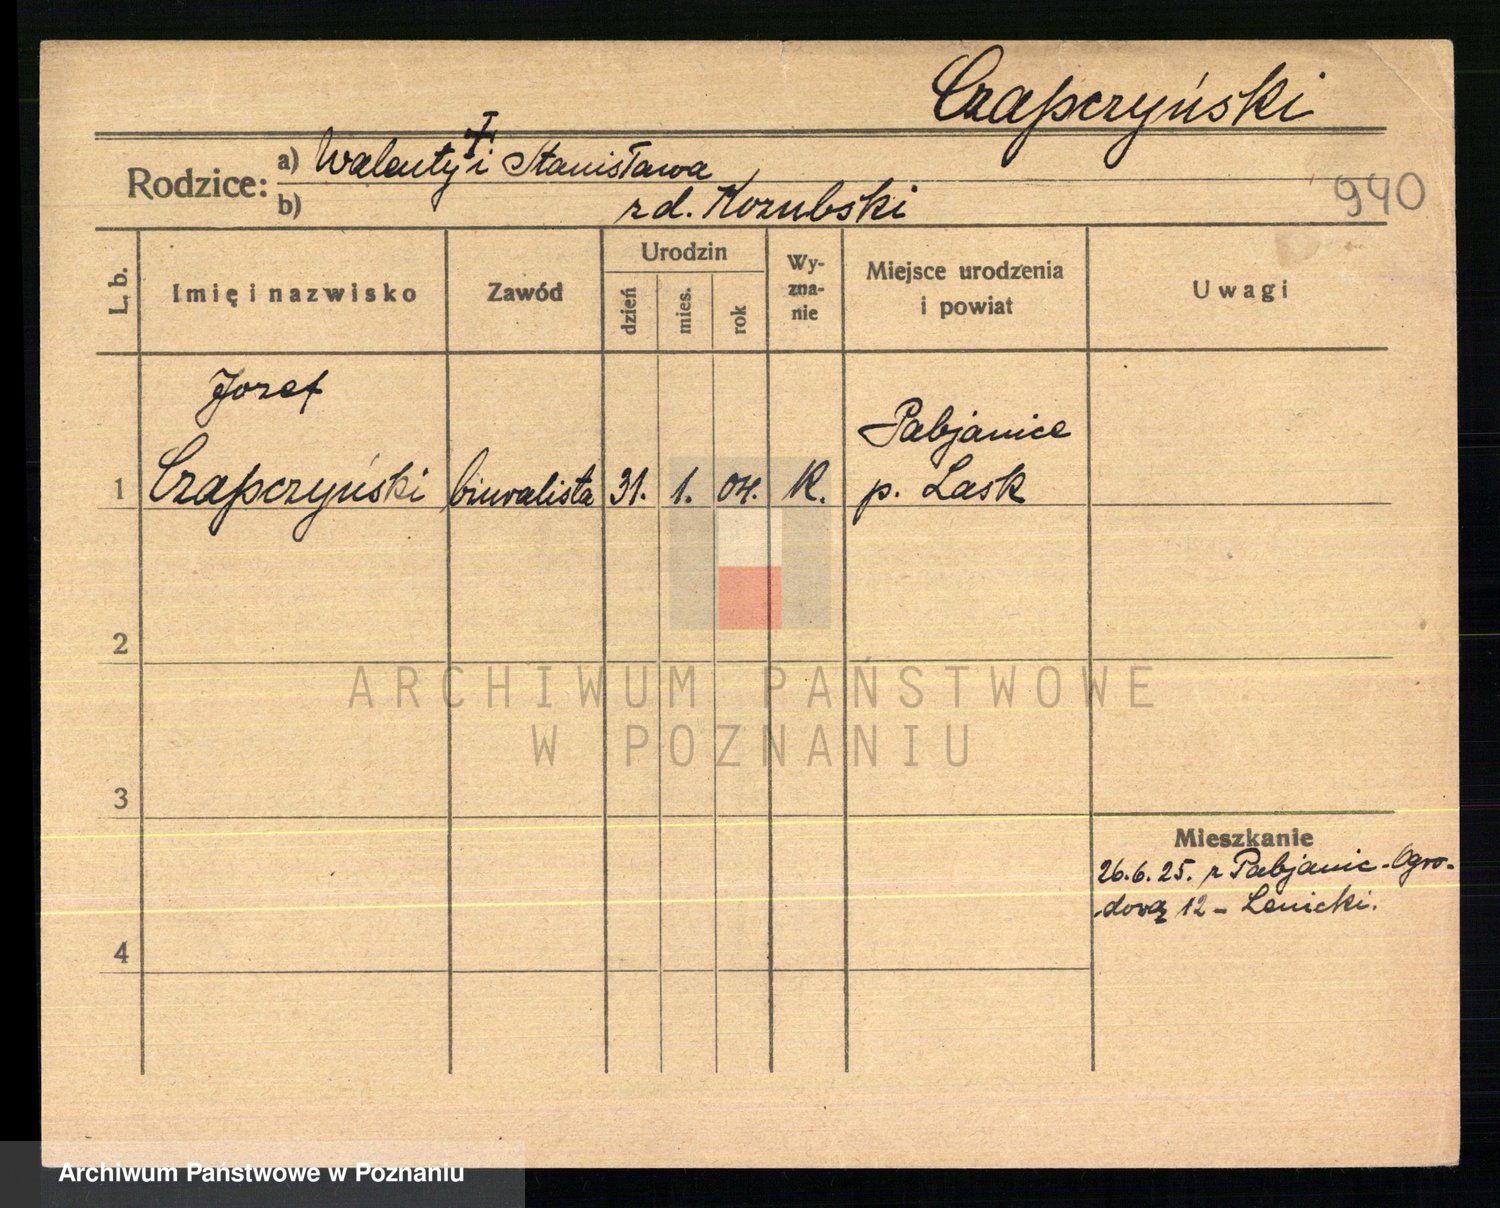 Czapczyński
Rodzice: a) Walenty † i Stanisława
b) zd. Kozubski
940
L. b.
Imię i nazwisko
Zawód
Urodzin
dzień
mies.
rok
Wy-
zna-
nie
Miejsce urodzenia
i powiat
Uwagi
Jozef
Pabjanice
1 Czapczyński biuralista 31. 1. 04. K. p. Lask
2
ARCHIWUM PAŃSTWOWE
W POZNANIU
3
Mieszkanie
26.6.25. z Pabjanic - Ogro-
dową 12 - Lenicki.
4
Archiwum Państwowe w Poznaniu